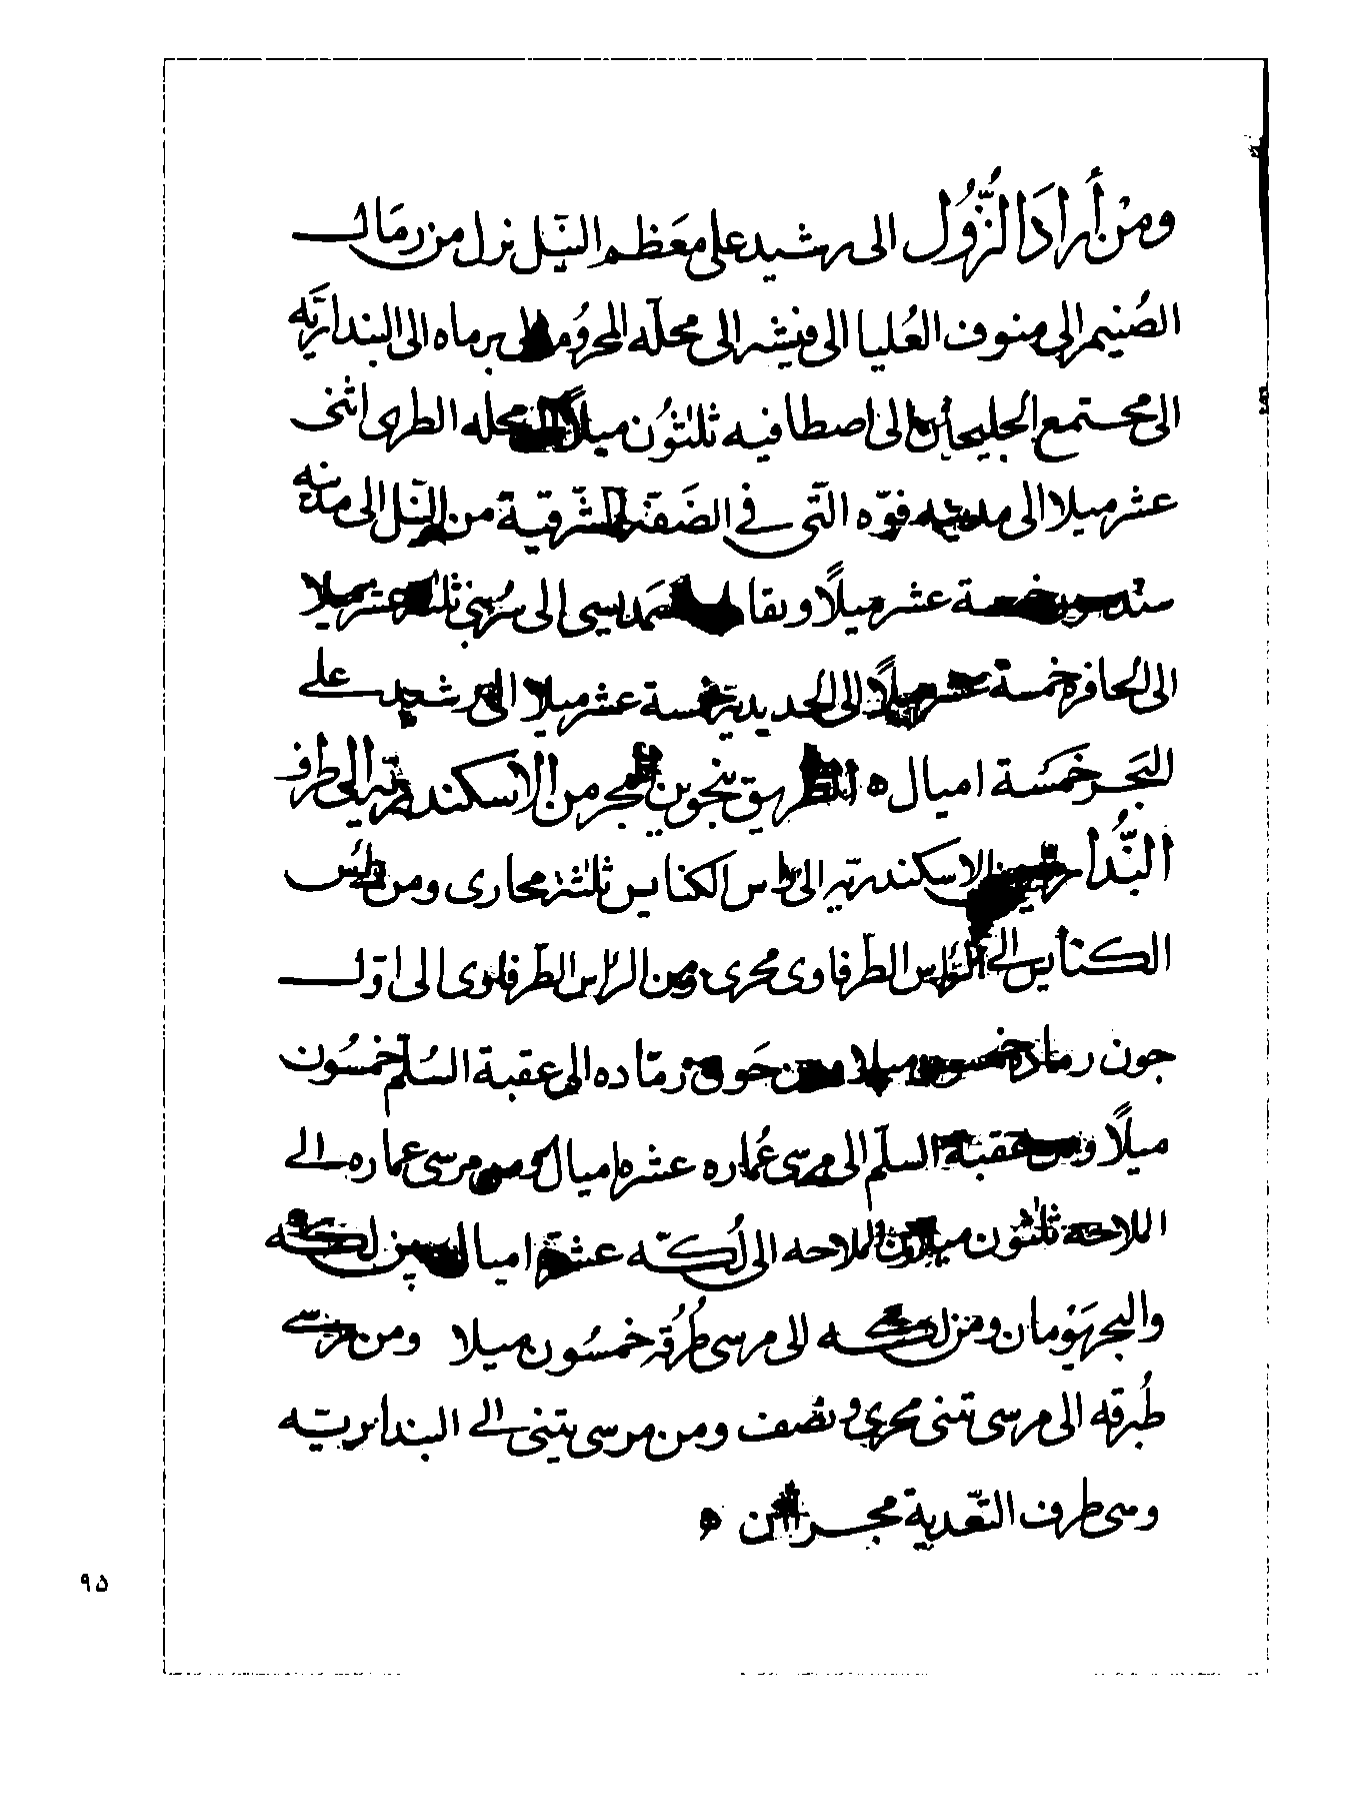 ومن أراد النُّزُول الى رشيد على معَظم النيّل نزل من رمال
الصُنيم الى منوف العُليا الى فيشه الى محلّه المحرُوم الى برماه الى البنداريّه
الى مجتمع الخليجان الى اصطافيه ثلثُون ميلاً محله الطرى اثنى
عشر ميلا الى مدينه فوّه التّى في الضَفة الشّرقيّة من النّيل الى مدنه
خمسة عشر ميلًا ويقا الى سُرنبى ثلثة عشر ميلا
الى الحافر خمسة عشر ميلًا الى الحديديّة خمسة عشر ميلا الى رشيد على
البَحَر خمَسَة اميال ه الطريق بنجوين البحر من الاسكندريّه الى طرف
البُّدا من الاسكندريّه الى راس الكنايس ثلثة مجارى ومن راس
الكنايس الى الرأس الطرفاوى مجرى ومن الرأس الطّرفاوى الى اوّل
جون رماده خمسون ميلا ومن جَون رمّاده الى عقبة السُلّم خمسُون
ميلًا ومن عقبة السلّم الى مرسى عُماره عشره اميال ومن مرسى عماره الى
الملاحة ثلثُون ميلا ومن الملاحه الى لُكّه عشرة اميال ومن لكّه
والبحر يَوْمان ومن لكّه الى مرسى طُرُقه خمسُون ميلا ومن مرسى
طُبرقه الى مرسى تينى مجرى ونصف ومن مرسى تينى الى البندابريّه
وهى طرف التّعدية مجريان ه
٩٥